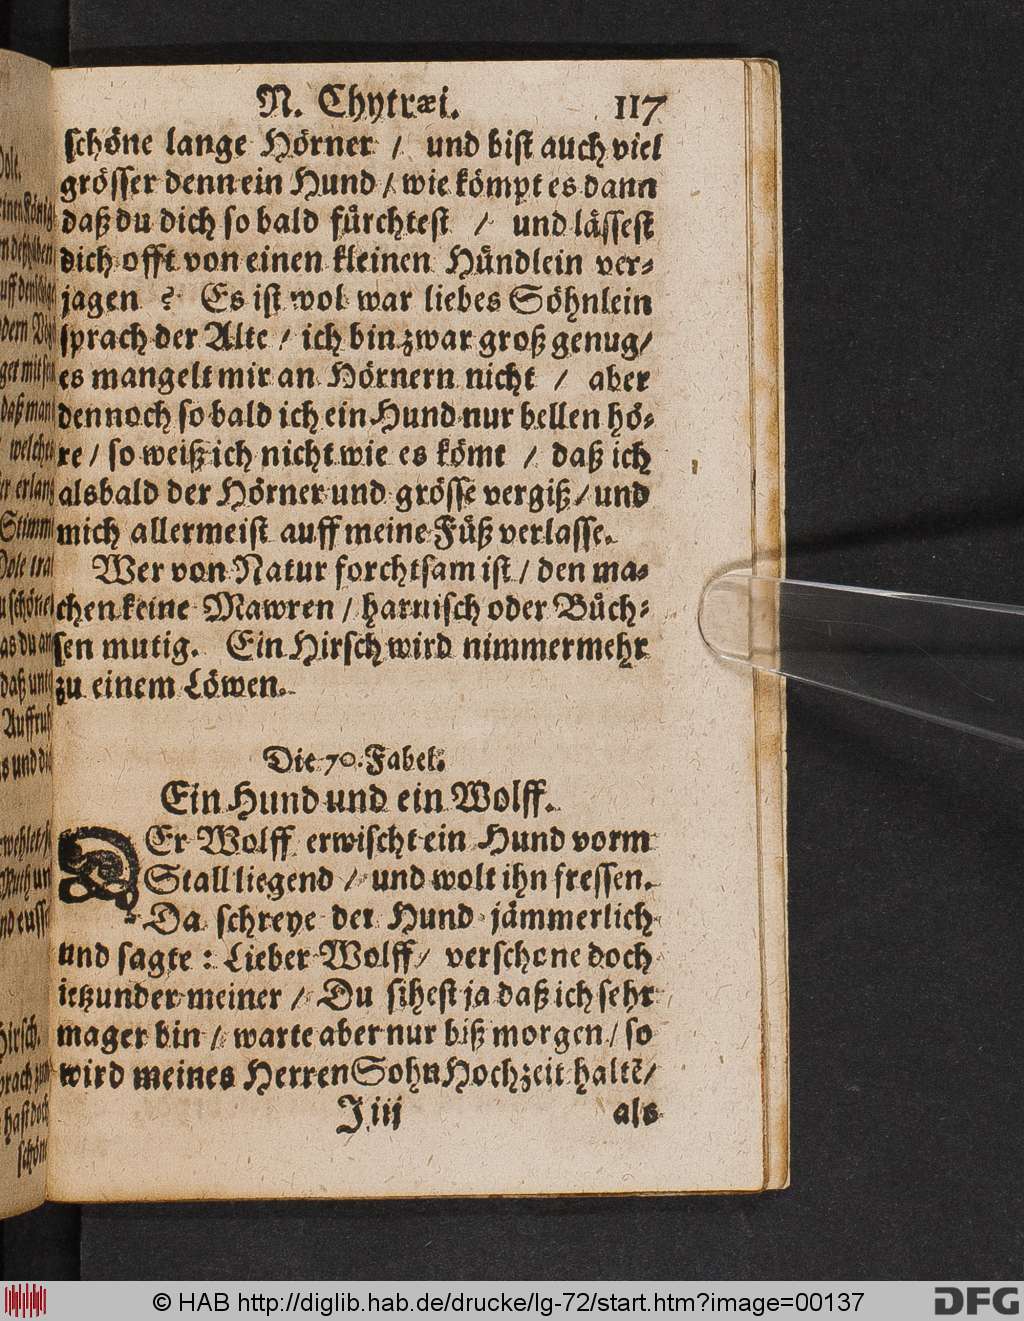 N. Chytræi. 117
schöne lange Hörner / und bist auch viel
grösser denn ein Hund / wie kömpt es dann
daß du dich so bald fürchtest / und lässest
dich offt von einen kleinen Hündlein ver-
jagen ? Es ist wol war liebes Söhnlein
sprach der Alte / ich bin zwar groß genug /
es mangelt mir an Hörnern nicht / aber
dennoch so bald ich ein Hund nur bellen hö-
re / so weiß ich nicht wie es kömt / daß ich
alsbald der Hörner und grösse vergiß / und
mich allermeist auff meine Füß verlasse.
Wer von Natur forchtsam ist / den ma-
chen keine Mawren / harnisch oder Büch-
sen mutig. Ein Hirsch wird nimmermehr
zu einem Löwen.
Die 70. Fabel.
Ein Hund und ein Wolff.
DEr Wolff erwischt ein Hund vorm
Stall liegend / und wolt ihn fressen.
Da schreye der Hund jämmerlich
und sagte : Lieber Wolff / verschone doch
ietzunder meiner / Du sihest ja daß ich sehr
mager bin / warte aber nur biß morgen / so
wird meines Herren Sohn Hochzeit haltẽ /
J iij als
© HAB http://diglib.hab.de/drucke/lg-72/start.htm?image=00137
DFG